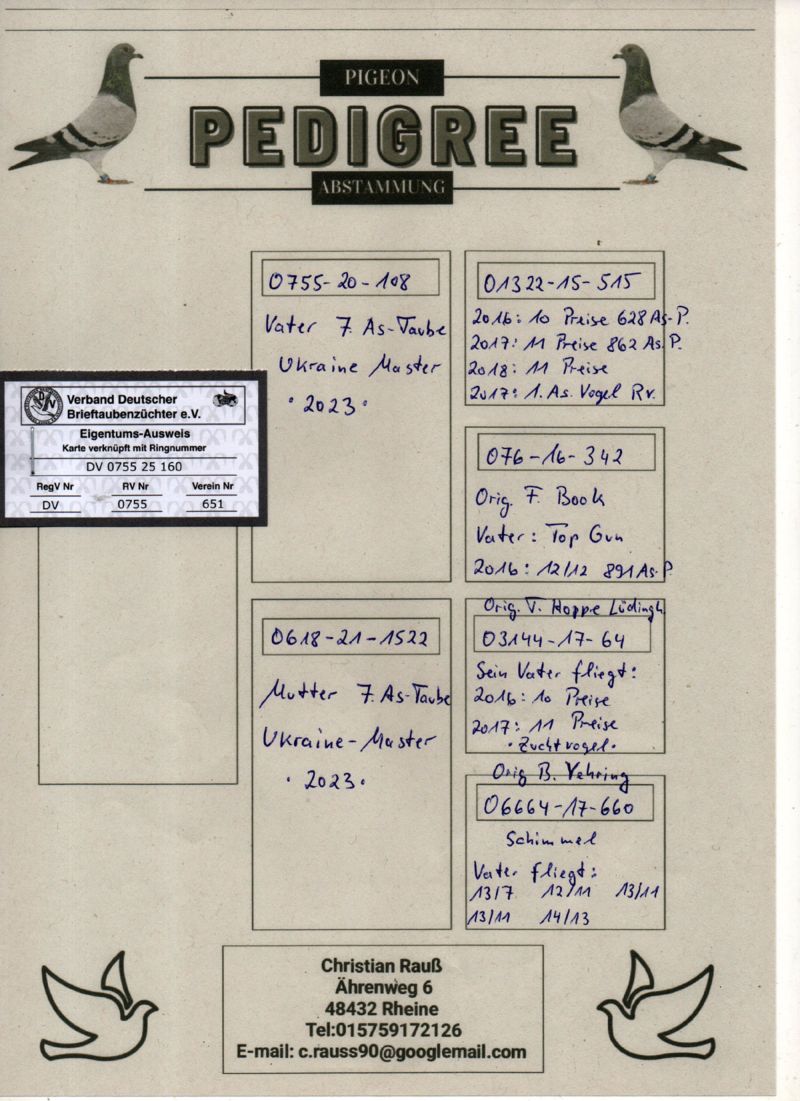 PIGEON
PEDIGREE
ABSTAMMUNG
Verband Deutscher
Brieftaubenzüchter e.V.
Eigentums-Ausweis
Karte verknüpft mit Ringnummer
DV 0755 25 160
RegV Nr RV Nr Verein Nr
DV 0755 651
0755-20-108
Vater 7. As-Taube
Ukraine Master
· 2023 ·
0618-21-1522
Mutter 7. As-Taube
Ukraine-Master
· 2023 ·
01322-15-515
2016: 10 Preise 628 As-P.
2017: 11 Preise 862 As.P.
2018: 11 Preise
2017: 1. As. Vogel Rv.
076-16-342
Orig. F. Book
Vater: Top Gun
2016: 12/12 891 As.P
Orig. T. Hoppe Lüdingh.
03144-17-64
Sein Vater fliegt:
2016: 10 Preise
2017: 11 Preise
· Zuchtvogel ·
Orig B. Vehring
06664-17-660
Schimmel
Vater fliegt:
13/7 12/11 13/11
13/11 14/13
Christian Rauß
Ährenweg 6
48432 Rheine
Tel:015759172126
E-mail: c.rauss90@googlemail.com